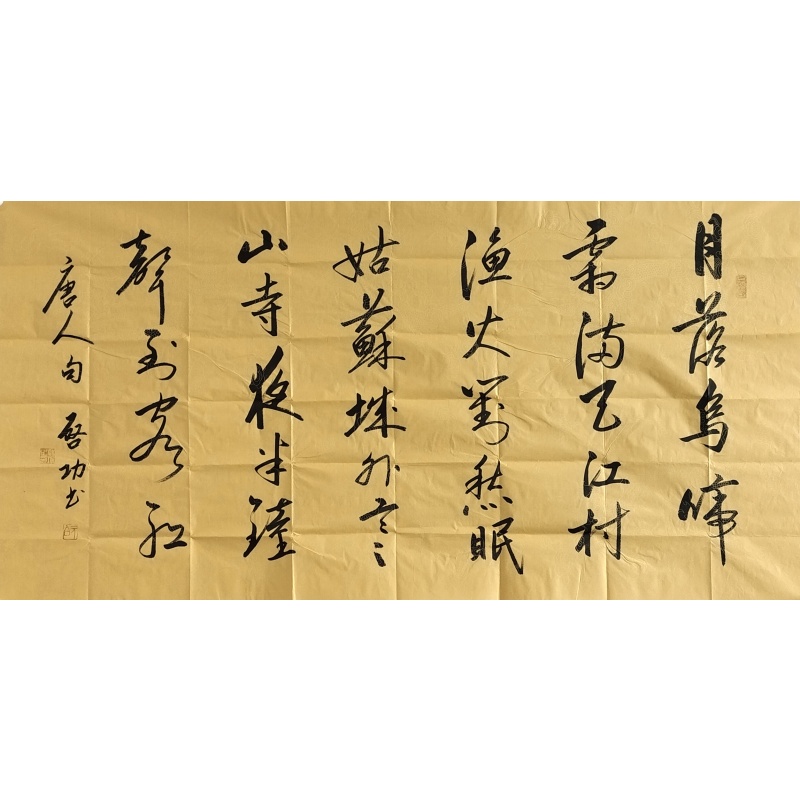 月落烏啼
霜滿天江村
漁火對愁眠
姑蘇城外寒
山寺夜半鐘
聲到客船
唐人句 啓功书